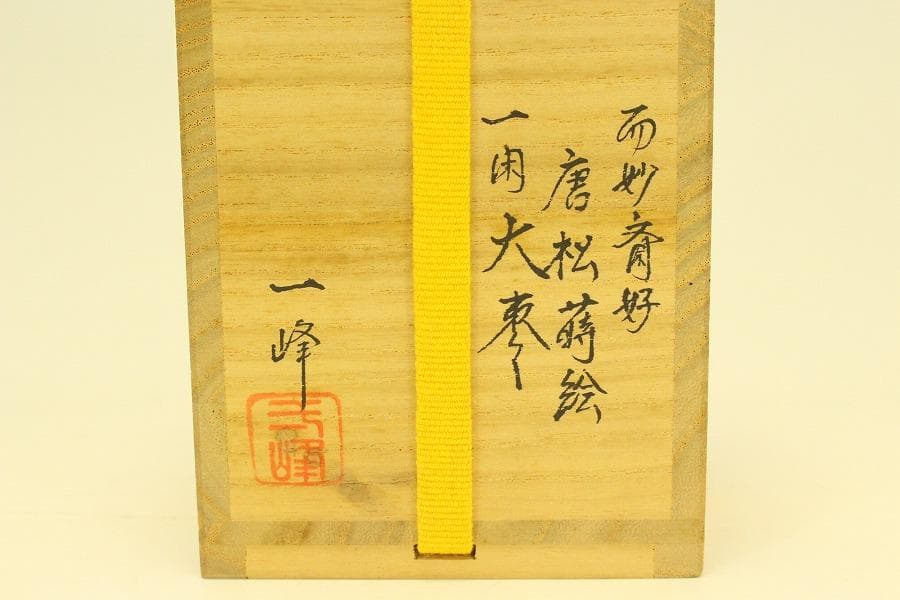 而妙斎好
唐松蒔絵
一閑大棗
一峰
一峰